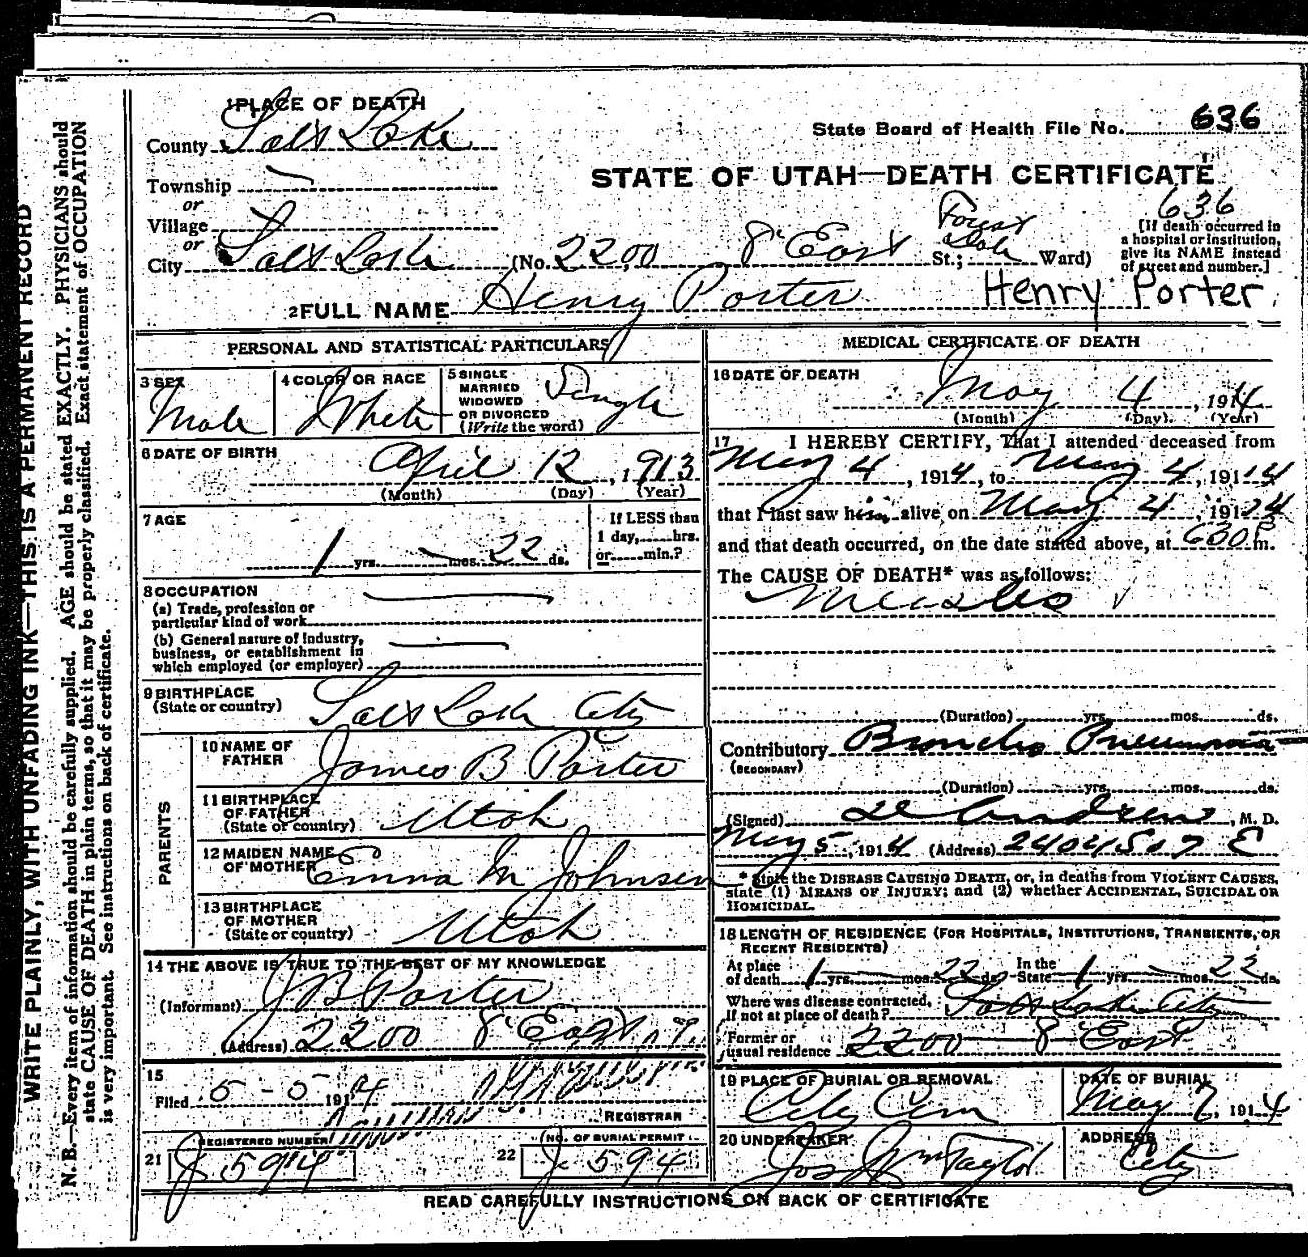 1 PLACE OF DEATH
County Salt Lake
State Board of Health File No. 636
Township —
or
Village
or
City Salt Lake (No. 2200 8" East St.; Forest Dale Ward)
STATE OF UTAH—DEATH CERTIFICATE
636
[If death occurred in
a hospital or institution,
give its NAME instead
of street and number.]
2 FULL NAME Henry Porter Henry Porter
PERSONAL AND STATISTICAL PARTICULARS
3 SEX
Male
4 COLOR OR RACE
White
5 SINGLE
MARRIED
WIDOWED
OR DIVORCED
(Write the word)
Single
6 DATE OF BIRTH
April 12, 1913
(Month) (Day) (Year)
7 AGE
1 yrs. — mos. 22 ds.
If LESS than
1 day, hrs.
or min.?
8 OCCUPATION
(a) Trade, profession or
particular kind of work
(b) General nature of industry,
business, or establishment in
which employed (or employer)
9 BIRTHPLACE
(State or country) Salt Lake City
PARENTS
10 NAME OF
FATHER James B Porter
11 BIRTHPLACE
OF FATHER
(State or country) Utah
12 MAIDEN NAME
OF MOTHER Emma M Johnsen
13 BIRTHPLACE
OF MOTHER
(State or country) Utah
14 THE ABOVE IS TRUE TO THE BEST OF MY KNOWLEDGE
(Informant) J B Porter
(Address) 2200 8" East
15
Filed 5-5 1914
REGISTRAR
REGISTERED NUMBER
21 J 594
NO. OF BURIAL PERMIT
22 J 594
MEDICAL CERTIFICATE OF DEATH
16 DATE OF DEATH
May 4, 1914
(Month) (Day) (Year)
17 I HEREBY CERTIFY, That I attended deceased from
May 4, 1914, to May 4, 1914
that I last saw him alive on May 4, 1914
and that death occurred, on the date stated above, at 630 P m.
The CAUSE OF DEATH* was as follows:
Measles
(Duration) yrs. mos. ds.
Contributory Broncho Pneumonia
(SECONDARY)
(Duration) yrs. mos. ds.
(Signed) , M. D.
May 5, 1914 (Address) 2404 So 7 E
* State the DISEASE CAUSING DEATH, or, in deaths from VIOLENT CAUSES,
state (1) MEANS OF INJURY; and (2) whether ACCIDENTAL, SUICIDAL OR
HOMICIDAL.
18 LENGTH OF RESIDENCE (FOR HOSPITALS, INSTITUTIONS, TRANSIENTS, OR
RECENT RESIDENTS)
At place
of death 1 yrs. — mos. 22 ds. In the
State 1 yrs. — mos. 22 ds.
Where was disease contracted,
if not at place of death? Salt Lake City
Former or
usual residence 2200 8" East
19 PLACE OF BURIAL OR REMOVAL
City Cem
DATE OF BURIAL
May 7, 1914
20 UNDERTAKER
Jos Wm Taylor
ADDRESS
City
READ CAREFULLY INSTRUCTIONS ON BACK OF CERTIFICATE
WRITE PLAINLY, WITH UNFADING INK—THIS IS A PERMANENT RECORD
N. B.—Every item of information should be carefully supplied. AGE should be stated EXACTLY. PHYSICIANS should
state CAUSE OF DEATH in plain terms, so that it may be properly classified. Exact statement of OCCUPATION
is very important. See instructions on back of certificate.